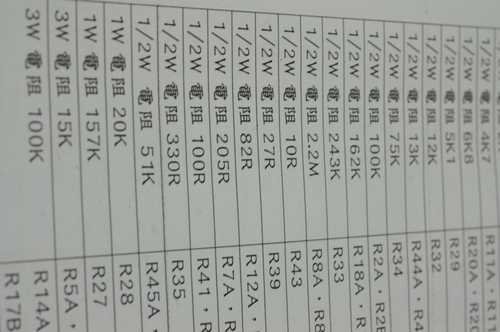 1/2W 電阻 4K7 R11A・R1
1/2W 電阻 6K8 R20A・R20
1/2W 電阻 5K1 R29
1/2W 電阻 12K R32
1/2W 電阻 13K R44A・R4
1/2W 電阻 75K R34
1/2W 電阻 100K R2A・R2B
1/2W 電阻 162K R18A・R
1/2W 電阻 243K R33
1/2W 電阻 2.2M R8A・R
1/2W 電阻 10R R43
1/2W 電阻 27R R39
1/2W 電阻 82R R12A・R
1/2W 電阻 205R R7A・R
1/2W 電阻 100R R41・R
1/2W 電阻 330R R35
1/2W 電阻 51K R45A・
1W 電阻 20K R28
1W 電阻 157K R27
3W 電阻 15K R5A・
3W 電阻 100K R14A
R17B